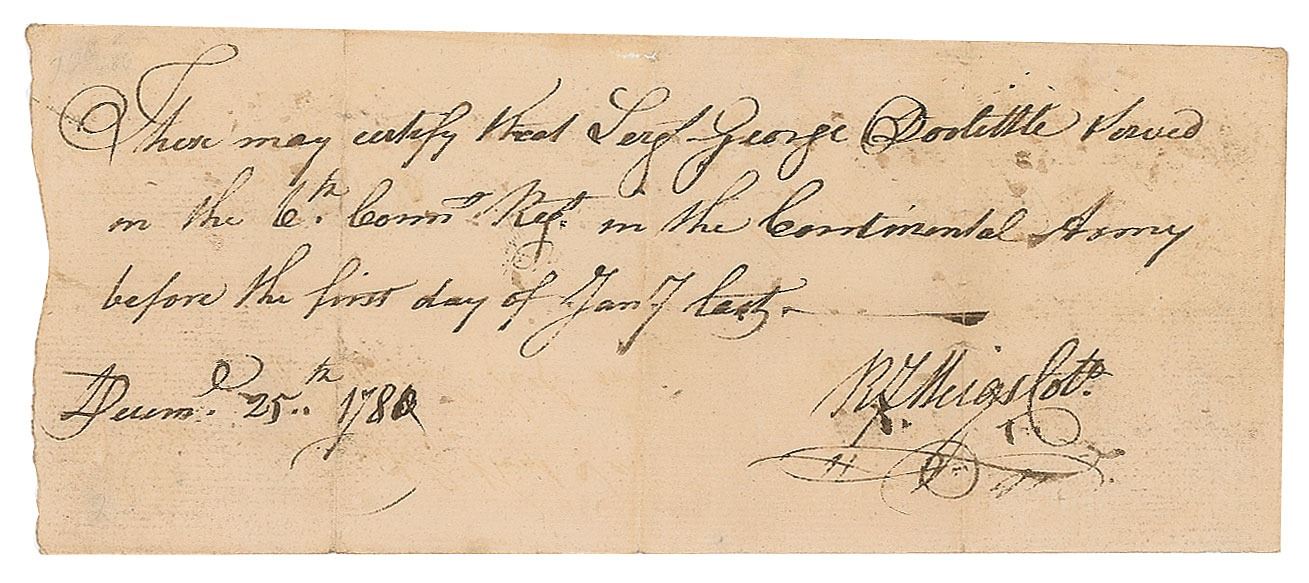 These may certify that Serjt George Doolittle Served
in the 6th Connt Regt in the Continental Army
before the first day of Jany last.
Decemr 25th 1780
RJ Meigs Colo